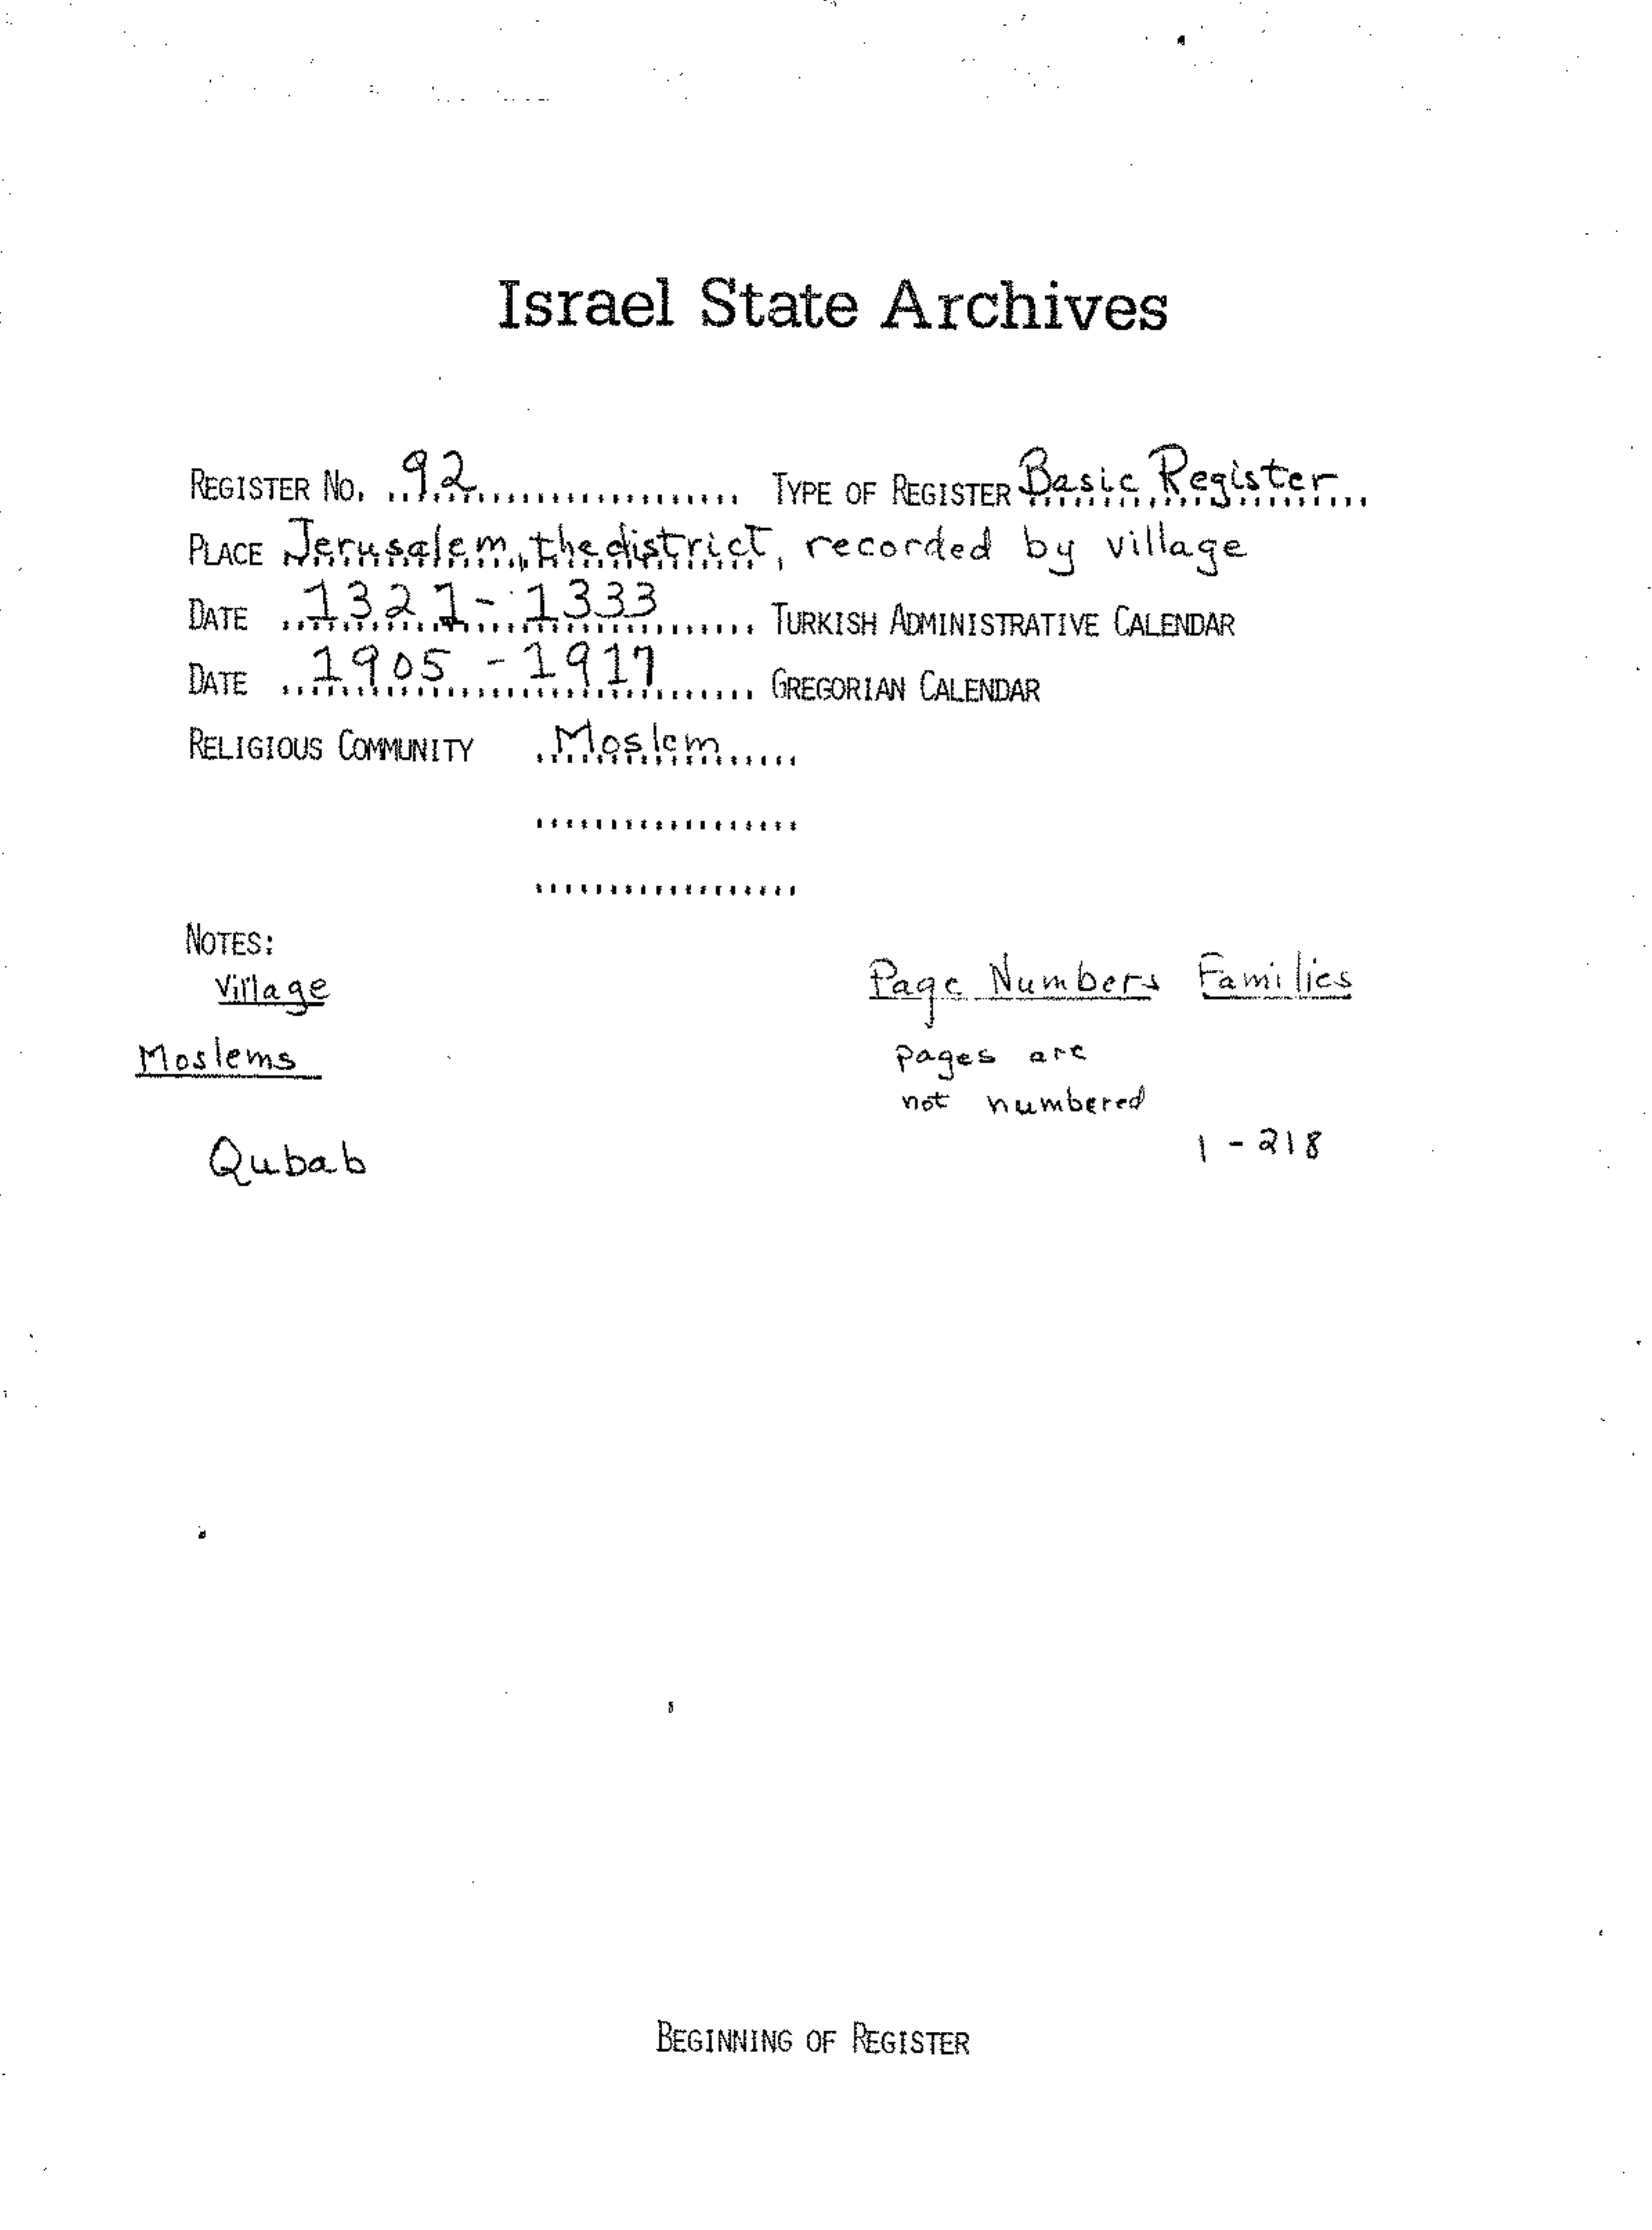 Israel State Archives
REGISTER NO. 92 TYPE OF REGISTER Basic Register
PLACE Jerusalem, the district, recorded by village
DATE 1321 - 1333 TURKISH ADMINISTRATIVE CALENDAR
DATE 1905 - 1917 GREGORIAN CALENDAR
RELIGIOUS COMMUNITY Moslem
NOTES:
Village Page Numbers Families
Moslems pages are
not numbered
Qubab 1 - 218
BEGINNING OF REGISTER